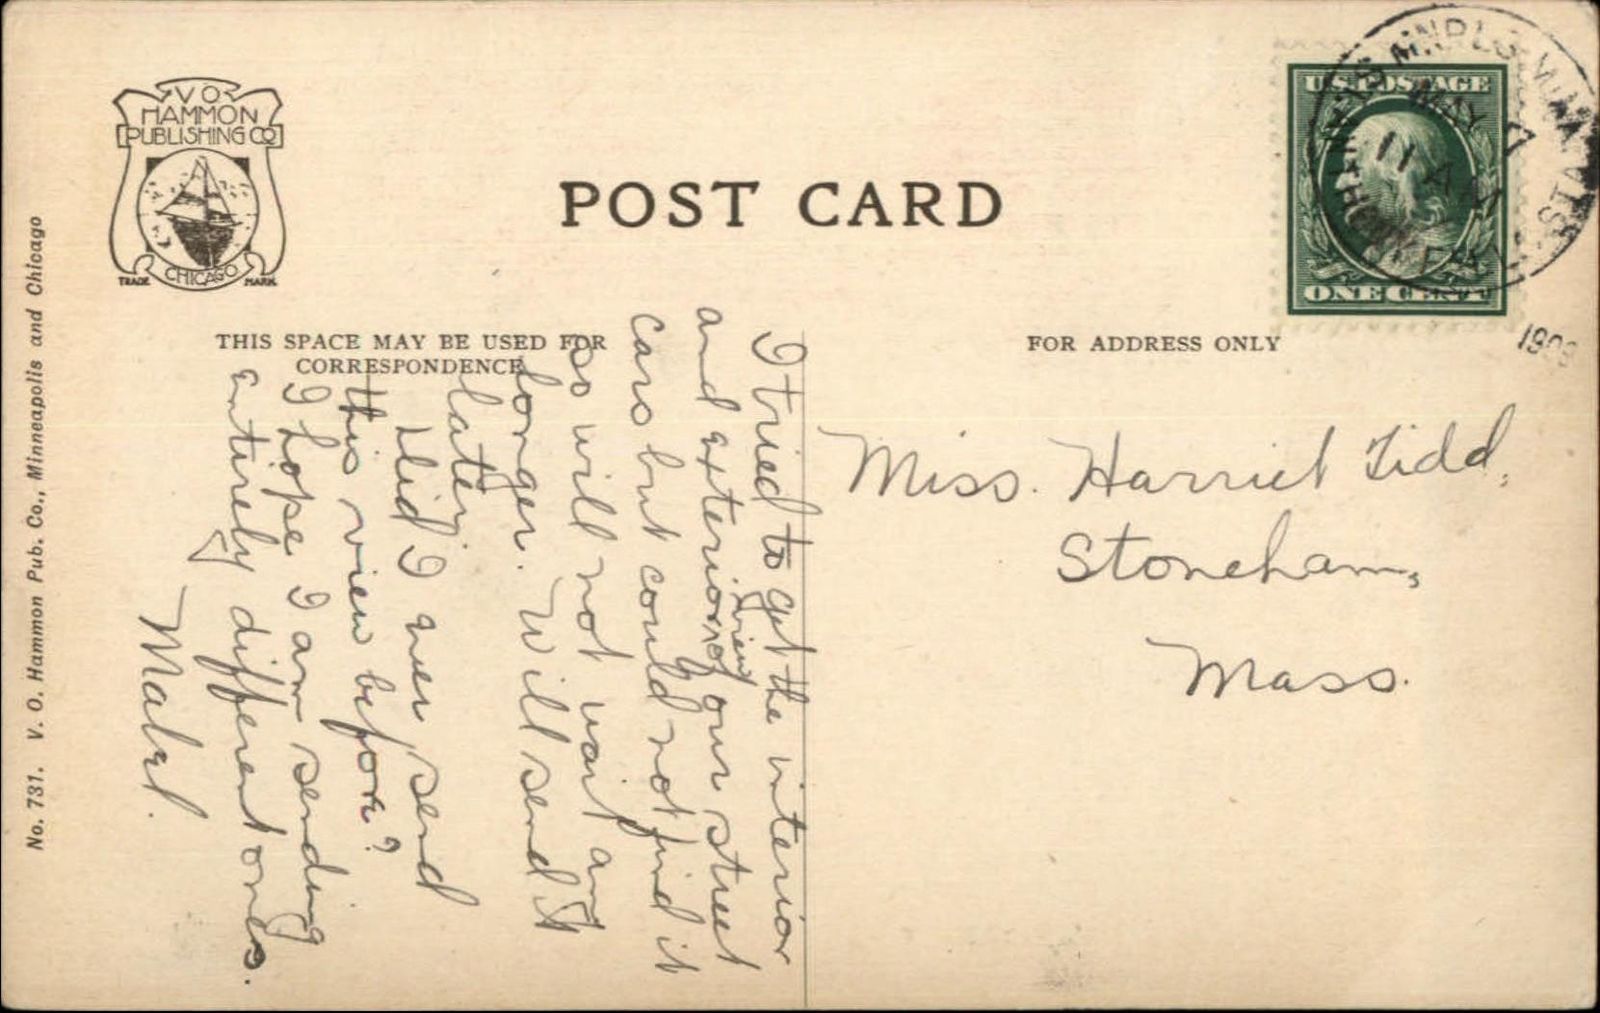 V O
HAMMON
PUBLISHING CO
CHICAGO
TRADE MARK
POST CARD
U.S. POSTAGE
ONE CENT
MAY 7
11 AM
1909
THIS SPACE MAY BE USED FOR
CORRESPONDENCE
FOR ADDRESS ONLY
No. 731. V. O. Hammon Pub. Co., Minneapolis and Chicago
I tried to get the interior
and exterior view of our street
cars but could not find it
so will not wait any
longer. Will send it
later.
Did I ever send
this view before?
I hope I am sending
entirely different ones.
Mabel.
Miss. Harriet Tidd,
Stoneham,
Mass.